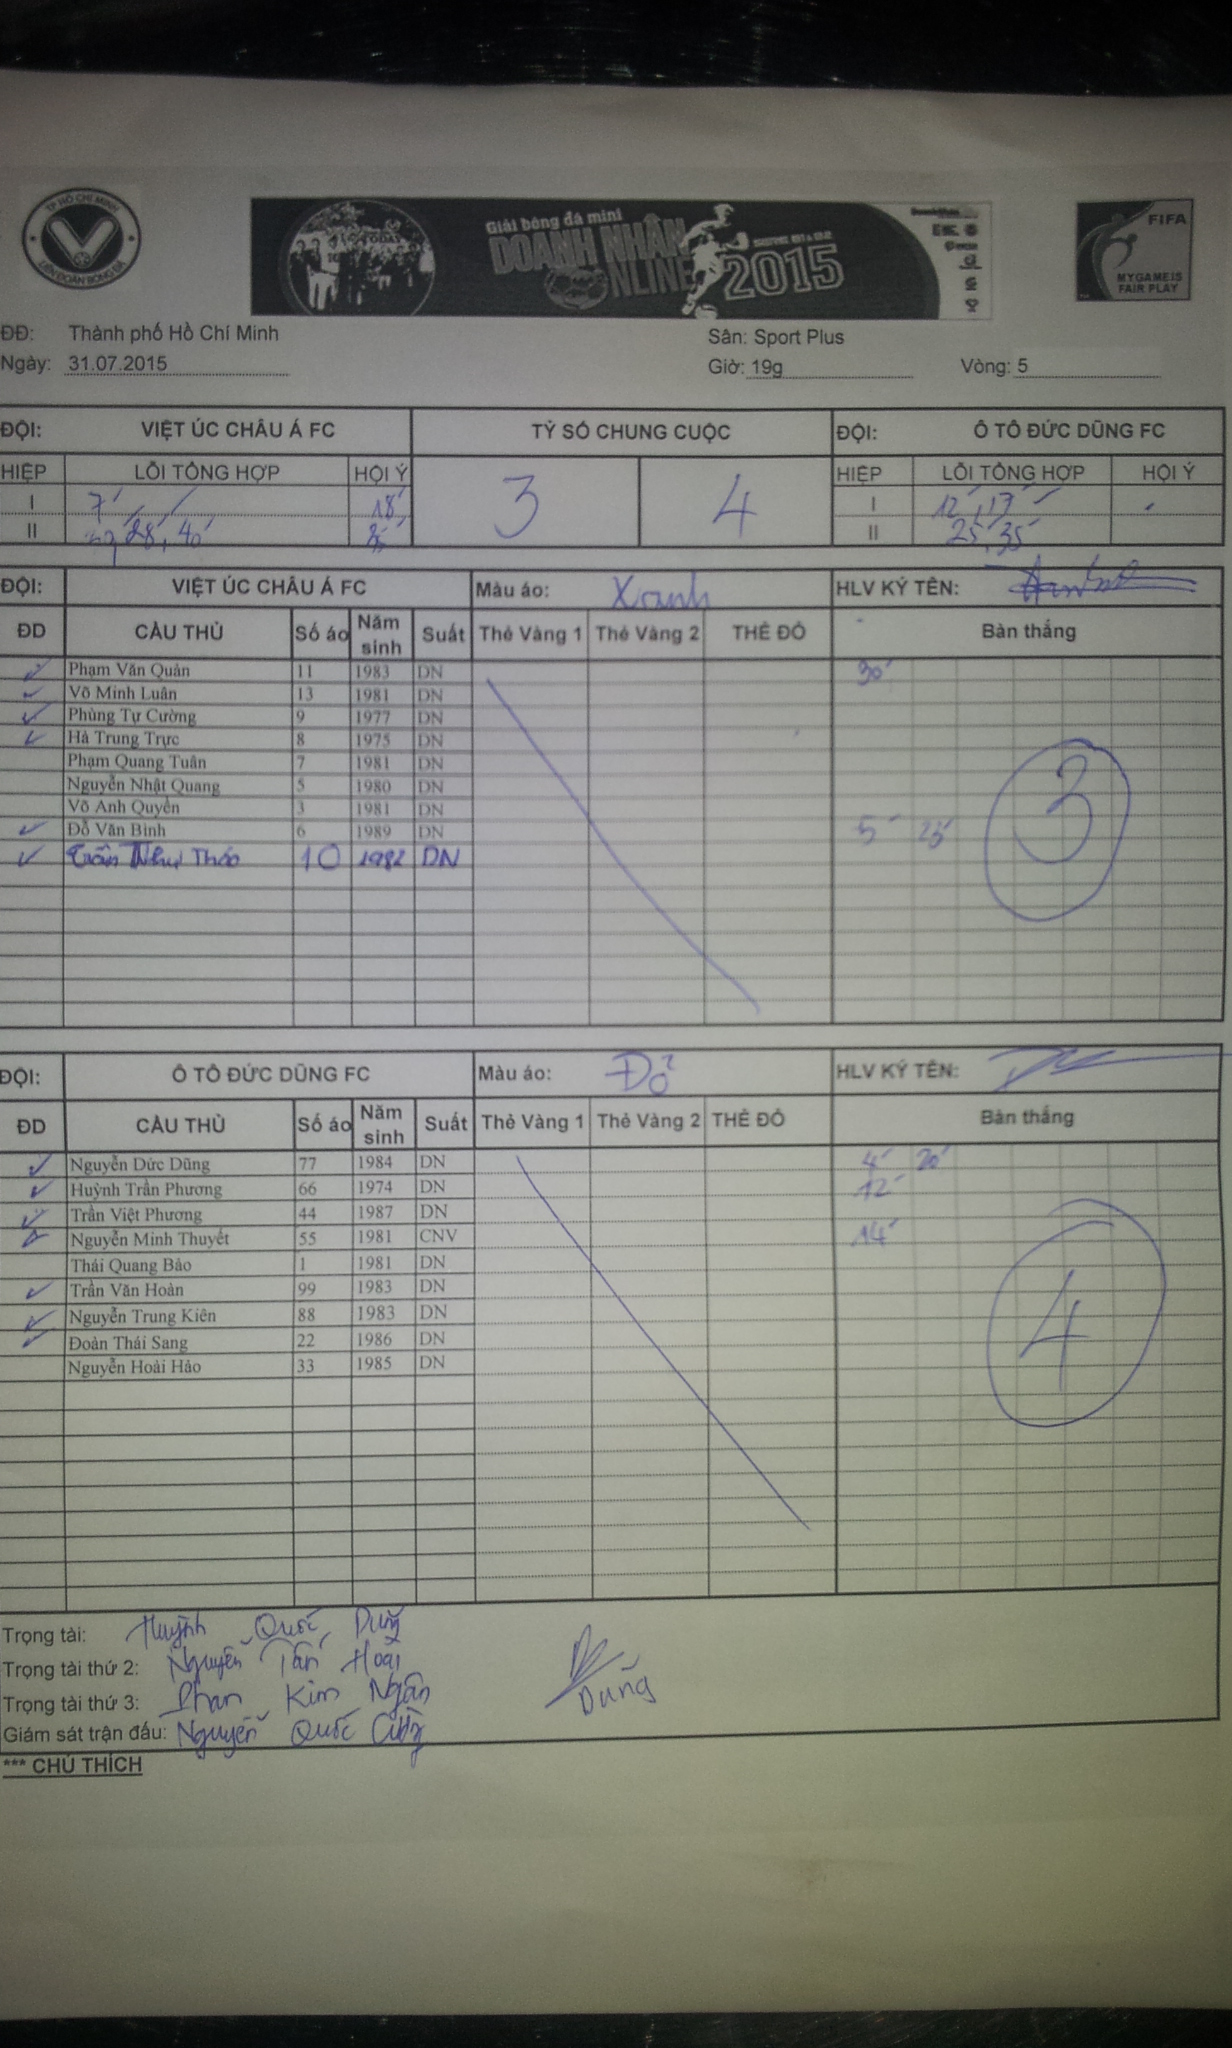 TP HỒ CHÍ MINH
LIÊN ĐOÀN BÓNG ĐÁ
Giải bóng đá mini
DOANH NHÂN
NLINE 2015
FIFA
MY GAME IS
FAIR PLAY
ĐĐ: Thành phố Hồ Chí Minh Sân: Sport Plus
Ngày: 31.07.2015 Giờ: 19g Vòng: 5
ĐỘI: VIỆT ÚC CHÂU Á FC TỶ SỐ CHUNG CUỘC ĐỘI: Ô TÔ ĐỨC DŨNG FC
HIỆP LỖI TỔNG HỢP HỘI Ý 3 4 HIỆP LỖI TỔNG HỢP HỘI Ý
I 7' 18' I 12', 17'
II 28', 40' II 25', 35'
ĐỘI: VIỆT ÚC CHÂU Á FC Màu áo: Xanh HLV KÝ TÊN:
ĐD CẦU THỦ Số áo Năm sinh Suất Thẻ Vàng 1 Thẻ Vàng 2 THẺ ĐỎ Bàn thắng
Phạm Văn Quản 11 1983 DN 30'
Võ Minh Luân 13 1981 DN
Phùng Tự Cường 9 1977 DN
Hà Trung Trực 8 1975 DN
Phạm Quang Tuân 7 1981 DN
Nguyễn Nhật Quang 5 1980 DN
Võ Anh Quyền 3 1981 DN
Đỗ Văn Bình 6 1989 DN 5' 25'
Trần Như Thảo 10 1982 DN
3
ĐỘI: Ô TÔ ĐỨC DŨNG FC Màu áo: Đỏ HLV KÝ TÊN:
ĐD CẦU THỦ Số áo Năm sinh Suất Thẻ Vàng 1 Thẻ Vàng 2 THẺ ĐỎ Bàn thắng
Nguyễn Đức Dũng 77 1984 DN 4' 20'
Huỳnh Trần Phương 66 1974 DN 12'
Trần Việt Phương 44 1987 DN
Nguyễn Minh Thuyết 55 1981 CNV 14'
Thái Quang Bảo 1 1981 DN
Trần Văn Hoàn 99 1983 DN
Nguyễn Trung Kiên 88 1983 DN
Đoàn Thái Sang 22 1986 DN
Nguyễn Hoài Hảo 33 1985 DN
4
Trọng tài: Huỳnh Quốc Dũng
Trọng tài thứ 2: Nguyễn Tấn Hoài
Trọng tài thứ 3: Phan Kim Ngân
Dũng
Giám sát trận đấu: Nguyễn Quốc
*** CHÚ THÍCH